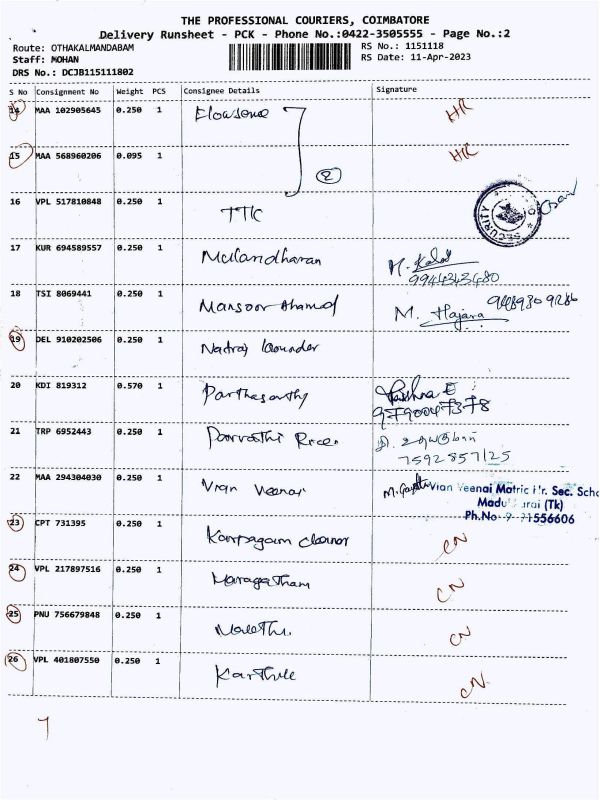 THE PROFESSIONAL COURIERS, COIMBATORE
Delivery Runsheet - PCK - Phone No.:0422-3505555 - Page No.:2
Route: OTHAKALMANDABAM RS No.: 1151118
Staff: MOHAN RS Date: 11-Apr-2023
DRS No.: DCJB115111802
S No Consignment No Weight PCS Consignee Details Signature
14 MAA 102905645 0.250 1 HR
15 MAA 568960206 0.095 1 HR
2
16 VPL 517810848 0.250 1 TTK SECURITY
17 KUR 694589557 0.250 1 M. 9944343480
18 TSI 8069441 0.250 1 Mansoor Ahamed M. Hajara
19 DEL 910202506 0.250 1
20 KDI 819312 0.570 1 Parthasarthy 9790047378
21 TRP 6952443 0.250 1 7592857125
22 MAA 294304030 0.250 1 Veenai Matric Hr. Sec.
(Tk)
Ph.No
23 CPT 731395 0.250 1 CN
24 VPL 217897516 0.250 1 Maragatham CN
25 PNU 756679848 0.250 1 CN
26 VPL 401807550 0.250 1 CN
7